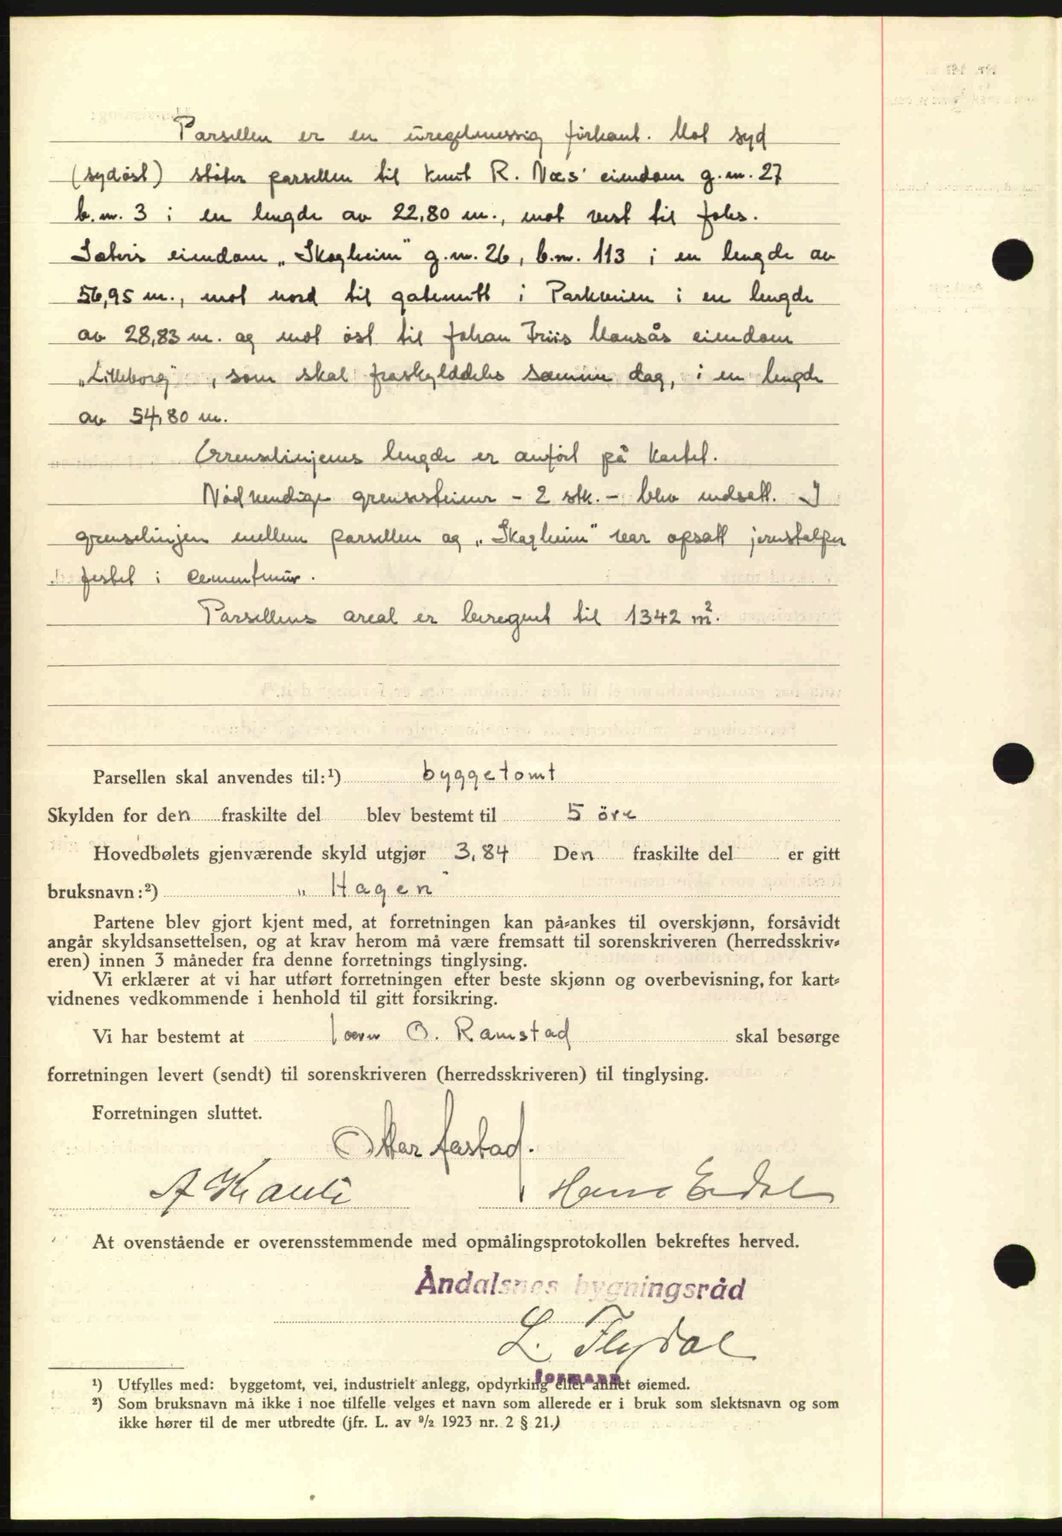 Parsellen er en uregelmessig firkant. Mot syd
(sydøst) støter parsellen til Knut R. Næs' eiendom g.nr. 27
b.nr. 3 i en lengde av 22,80 m., mot vest til Johs.
Sæters eiendom „Skogheim" g.nr. 26, b.nr. 113 i en lengde av
56,95 m., mot nord til gatemidt i Parkveien i en lengde
av 28,83 m. og mot øst til Johan Friis Monsås eiendom
„Lilleborg" , som skal fraskylddeles samme dag, i en lengde
av 54,80 m.
Grenselinjens lengde er anført på kartet.
Nødvendige grensesteiner - 2 stk. - blev nedsatt. I
grenselinjen mellem parsellen og „Skogheim" var opsatt jernstolper
festet i cementmur.
Parsellens areal er beregnet til 1342 m².
Parsellen skal anvendes til:¹) byggetomt
Skylden for den fraskilte del blev bestemt til 5 öre
Hovedbølets gjenværende skyld utgjør 3,84 Den fraskilte del er gitt
bruksnavn:²) „ Hagen"
Partene blev gjort kjent med, at forretningen kan på-ankes til overskjønn, forsåvidt
angår skyldsansettelsen, og at krav herom må være fremsatt til sorenskriveren (herredsskriv-
eren) innen 3 måneder fra denne forretnings tinglysing.
Vi erklærer at vi har utført forretningen efter beste skjønn og overbevisning, for kart-
vidnenes vedkommende i henhold til gitt forsikring.
Vi har bestemt at O. Ramstad skal besørge
forretningen levert (sendt) til sorenskriveren (herredsskriveren) til tinglysing.
Forretningen sluttet.
Ottar
A Hans
At ovenstående er overensstemmende med opmålingsprotokollen bekreftes herved.
Åndalsnes bygningsråd
L. Flydal
formann
¹) Utfylles med: byggetomt, vei, industrielt anlegg, opdyrking eller annet øiemed.
²) Som bruksnavn må ikke i noe tilfelle velges et navn som allerede er i bruk som slektsnavn og som
ikke hører til de mer utbredte (jfr. L. av ⁹/₂ 1923 nr. 2 § 21.)